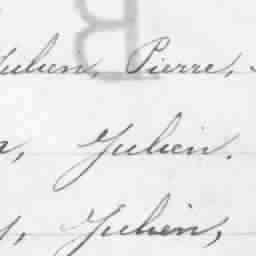 Julien, Pierre,
Julien.
Julien,